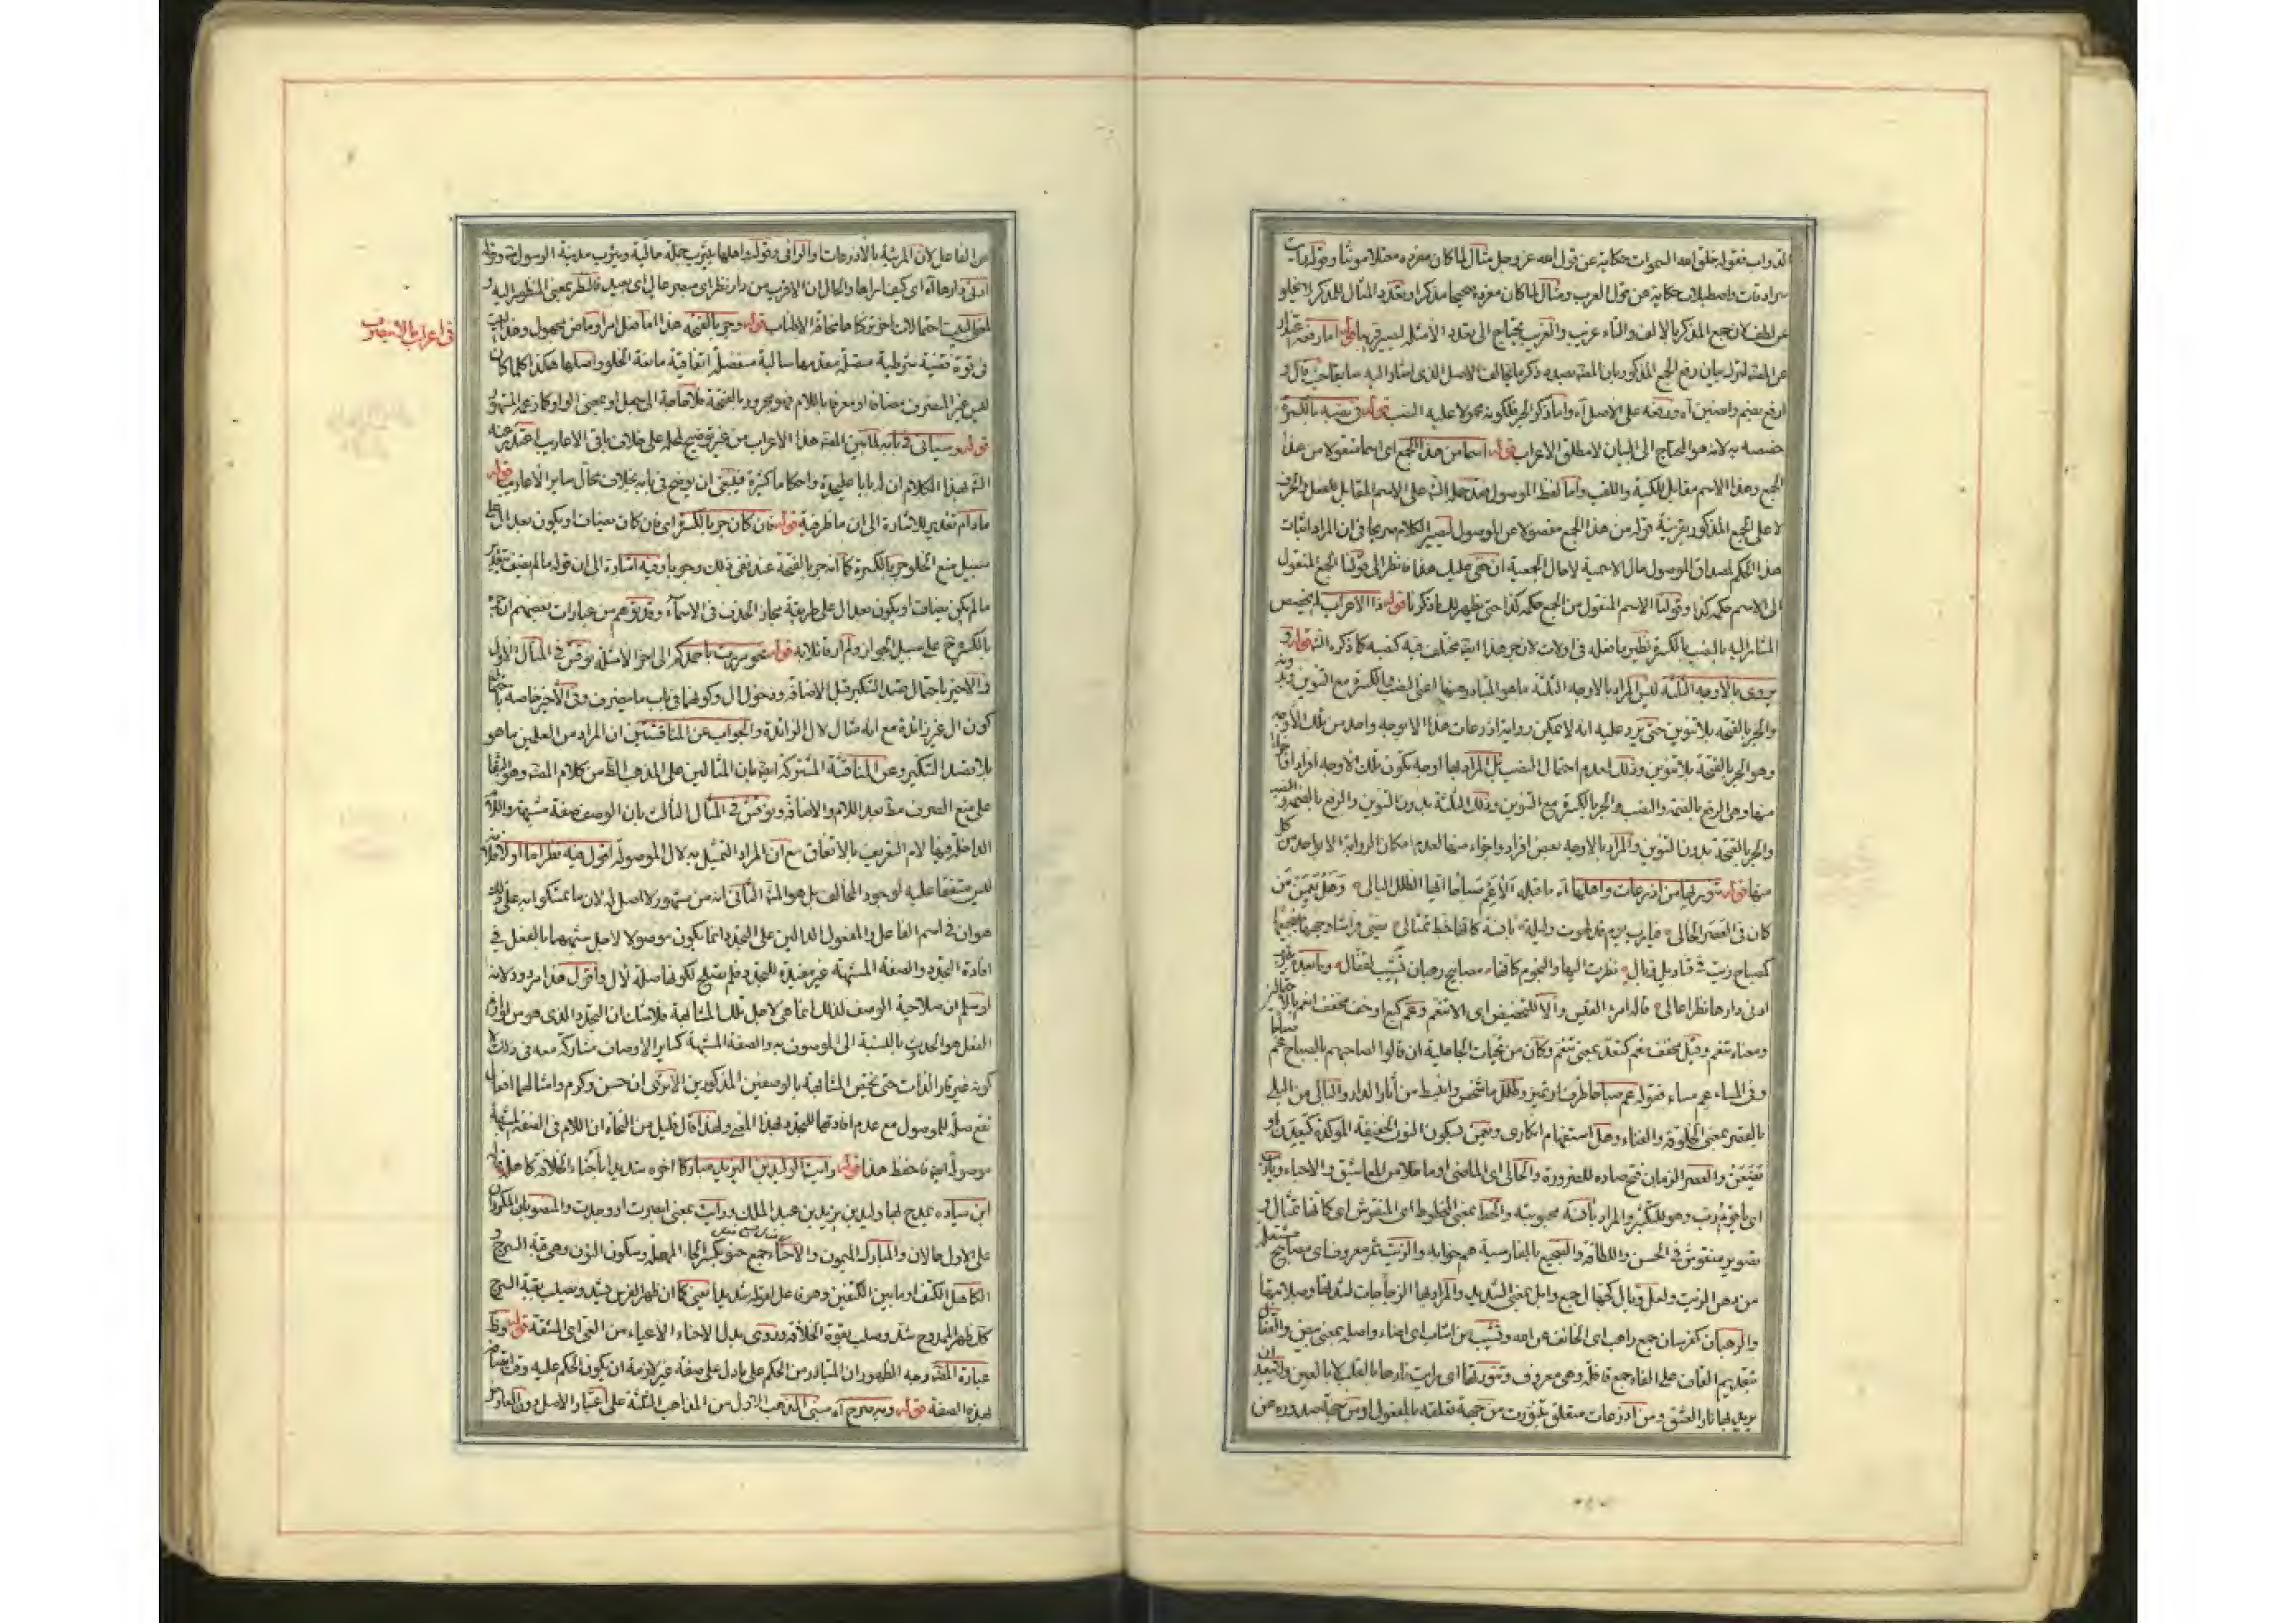 الدواب فقوله خلق الله السموات حكاية عن قول الله عز وجل مثال لما كان مفرده معتلا مونثا وقوله رايت
سرادقات واصطبلات حكاية عن قول العرب ومثال لما كان مفرده صحيحا مذكرا وتعدد المثال للمذكر لا يخلو
عن لطف لان جمع المذكر بالالف والتاء غريب والغريب يحتاج الى تعدد الامثلة ليصير قريبا قوله اما رفعه
عن المصنف لترك بيان رفع الجمع المذكور بان المصنف بصدد ذكر ما يخالف الاصل الذى اشار اليه سابقا حيث قال و
ارفع بضم وانصبن آه ورفعه على الاصل آه واما ذكر الجر فلكونه محمولا عليه النصب قوله فى نصبه بالكسرة
خصصه به لانه هو المحتاج الى البيان لا مطلق الاعراب قوله اسما من هذا الجمع اى اسما منقولا من هذا
الجمع وهذا الاسم مقابل للكنية واللقب واما لفظ الموصول فقد حمله الش على الاسم المقابل للفعل والحرف
لا على الجمع المذكور بقرينة قوله من هذا الجمع مفصولا عن الموصول ليصير الكلام صريحا فى ان المراد اثبات
هذا الحكم لمصداق الموصول حال الاسمية لا حال الجمعية ان خفى عليك هذا فانظر الى قولنا الجمع المنقول
الى الاسم حكمه كذا وقولنا الاسم المنقول من الجمع حكمه كذا حتى يظهر لك ما ذكرنا قوله ذا الاعراب لم يخصص
المشار اليه بالنصب بالكسرة نظير ما فعله فى اولات لان جر هذا ايضا مختلف فيه كنصبه كما ذكره الش قوله و
يروى بالاوجه الثلثة ليس المراد بالاوجه الثلثة ما هو المتبادر منها اعنى النصب بالكسرة مع التنوين
والجر بالفتحه بلا تنوين حتى يرد عليه انه لا يمكن رواية اذرعات هذا الا بوجه واحد من تلك الاوجه
وهو الجر بالفتحة بلا تنوين وذلك لعدم احتمال النصب بل المراد بها اوجه تكون تلك الاوجه افرادا
منها وهى الرفع بالضمة والنصب والجر بالكسرة مع التنوين وتلك الثلثة بدون التنوين والرفع بالضم والنصب
والجر بالفتحة بدون التنوين والمراد بالاوجه بعض افراد واجزاء منها لعدم امكان الرواية الا بواحد من كل
منها قوله تنورتها من اذرعات واهلها آه ما قبله الا عم صباحا ايها الطلل البالى وهل يعمن من
كان فى العصر الخالى فيارب يوم قد لهوت وليلة بآنسة كانها خط تمثال يضيء فراشها وجهها لضجيعها
كمصباح زيت فى قناديل ذبال نظرت اليها والنجوم كانها مصابيح رهبان تشب لقفال وبعده بيثرب
ادنى دارها نظر عالى قاله امرؤ القيس والا للتحضيض اى الا تنعم وعم كبع او خف مخفف انعم
ومعناه تنعم وقيل مخفف نعم كتعد بمعنى تنعم وكان من تحيات الجاهلية ان قالوا لصاحبهم بالصباح عم صباحا
وفى المساء عم مساء فقوله عم صباحا ظرف او تميز والطلل ما شخص وانبسط من آثار الدار والبالى من البلى
بالقصر بمعنى الخلوقة والفناء وهل استفهام انكارى ويعمن بسكون النون الخفيفة المؤكدة كيعدن او
والعصر الزمان فتح صاده للضرورة والخالى اى الماضى او ما خلا من المعاشيق والاحباء ويارب
اى يا قوم رب وهو للتكثير والمراد بآنسة محبوبته والخط بمعنى المخطوط اى المنقوش اى كانها تمثال و
تصوير منقوش فى الحسن واللطافة والضجيع بالفارسية هم خوابه والزيت ثمر معروف اى مصباح مشتعلة
من دهن الزيت ولعل ذبال جمع ذابل بمعنى الشديد والمراد بها الزجاجات لشدتها وصلابتها
والرهبان كفرسان جمع راهب اى الخائف عن الله وتشب من اشباب اى اضاء واصله بمعنى يضيئ والقفال
بتقديم القاف على الفاء جمع قافلة وهى معروف وتنورتها اى رايت نارها بالقلب لا بالعين
يريد لها نار العشق ومن اذرعات متعلق بتنورت من جهة تعلقه بالمفعول او من جهة صدوره عن
فى اعراب ما لا ينصرف
عن الفاعل لان المرئية بالاذرعات او الرائى وقوله واهلها بيثرب جملة حالية ويثرب مدينة الرسول ص وقوله
ادنى دارها آه اى كيف اراها والحال ان الاقرب من دارها نظر اى مبصر عالى اى بعيد فالنظر بمعنى المنظور اليه و
لهذا البيت احتمالات اخر تركناها مخافة الاطناب قوله وجر بالفتحه هذا اما فعل امر او ماض مجهول وهذا البيت
فى قوة قضية شرطية متصلة مقدمها سالبة منفصلة اتفاقية مانعة الخلو واصلها هكذا كلما كان
ليس غير المنصرف مضافا او معرفا باللام فهو مجرور بالفتحة فلا حاجة الى جعل او بمعنى الواو كما زعمه المشهور
قوله وسياتى فى بابه لما بين المصنف هذا الاعراب من غير توضيح لمحله على خلاف باقى الاعاريب اعتذر عنه
الش بهذا الكلام ان له بابا عليحدة واحكاما كثيرة فينبغى ان يوضح فى بابه بخلاف محال ساير الاعاريب قوله
مادام تقدير للاشارة الى ان ما ظرفية قوله فان كان جر بالكسرة اى فان كان يضاف او يكون بعد ال على
سبيل منع الخلو جر بالكسرة كما انه جر بالفتحة عند نفى ذلك وجوبا وفيه اشارة الى ان قوله ما لم يضف بتقدير
ما لم يكن يضاف او يكون بعد ال على طريقة مجاز الحذف فى الاسماء وقد توهم من عبارات بعضهم ان جره
بالكسرة ح على سبيل الجواز ولم ار قائلا به قوله نحو مررت باحمدكم الى آخر الامثلة نوقش فى المثال الاول
والاخير باحتمال قصد التنكير قبل الاضافة ودخول ال وكونهما فى باب ما ينصرف وفى الاخير خاصة باحتمال
كون ال غير زائدة مع انه مثال لال الزائدة والجواب عن المناقشتين ان المراد من العلمين ما هو
بلا قصد التنكير وعن المناقشة المشتركة ايضا بان المثالين على المذهب الظ من كلام المصنف وهو البقاء
على منع الصرف مط بعد اللام والاضافة ونوقش فى المثال الثالث بان الوصف صفة مشبهة واللام
الداخلة فيها لام التعريف بالاتفاق مع ان المراد التمثيل به لال الموصولة اقول فيه نظر اما اولا فلانه
ليس متفقا عليه لوجود المخالف بل هو المش الثانى انه من مشهور لا اصل له لان ما تمسكوا به على ذلك
هو ان فى اسم الفاعل والمفعول الدالين على التجدد انما يكون موصولا لاجل شبههما بالفعل فى
افادة التجدد والصفة المشبهة غير مفيدة للتجدد فلم تصلح لكونها صلة لال واقول هذا مردود لانه
لو سلم ان صلاحية الوصف لذلك انما هى لاجل تلك المشابهة فلا شك ان التجدد الذى هو من لوازم
الفعل هو الحديث بالنسبة الى الموصوف به والصفة المشبهة كساير الاوصاف مشاركة معه فى ذلك
كونه غير قار الذات حتى يختص المشابهة بالوصفين المذكورين الا ترى ان حسن وكرم وامثالهما افعال
تقع صلة للموصول مع عدم افادتها للتجدد بهذا المعنى ولهذا قال قليل من النحاة ان اللام فى الصفة المشبهة
موصولة ايضا فاحفظ هذا قوله رايت الوليد بن اليزيد مباركا آخره شديدا باحناء الخلافة كاهله
ابن ميادة يمدح بها وليد بن يزيد بن عبد الملك ورايت بمعنى ابصرت او وجدت والمنصوبان المكرران
على الاول حالان والمبارك الميمون والاحناء جمع حنو بكسر الحاء المهملة وسكون النون وهى قبة السرج و
الكاهل الكتف او ما بين الكتفين وهو فاعل لقوله شديدا يعنى كما ان ظهر الفرس يشد ويصلب بقبة السرج
كك ظهر الممدوح شد وصلب بقوة الخلافة وروى بدل الاحناء الاعباء من العبئ اى المشقة قوله وظ
عبارة المصنف وجه الظهور ان المتبادر من الحكم على ما دل على صفة غير لازمة ان يكون الحكم عليه وقت اتصافه
بهذه الصفة قوله وبه صرح آه مبنى المذهب الاول من المذاهب الثلثة على اعتبار الاصل دون العارض